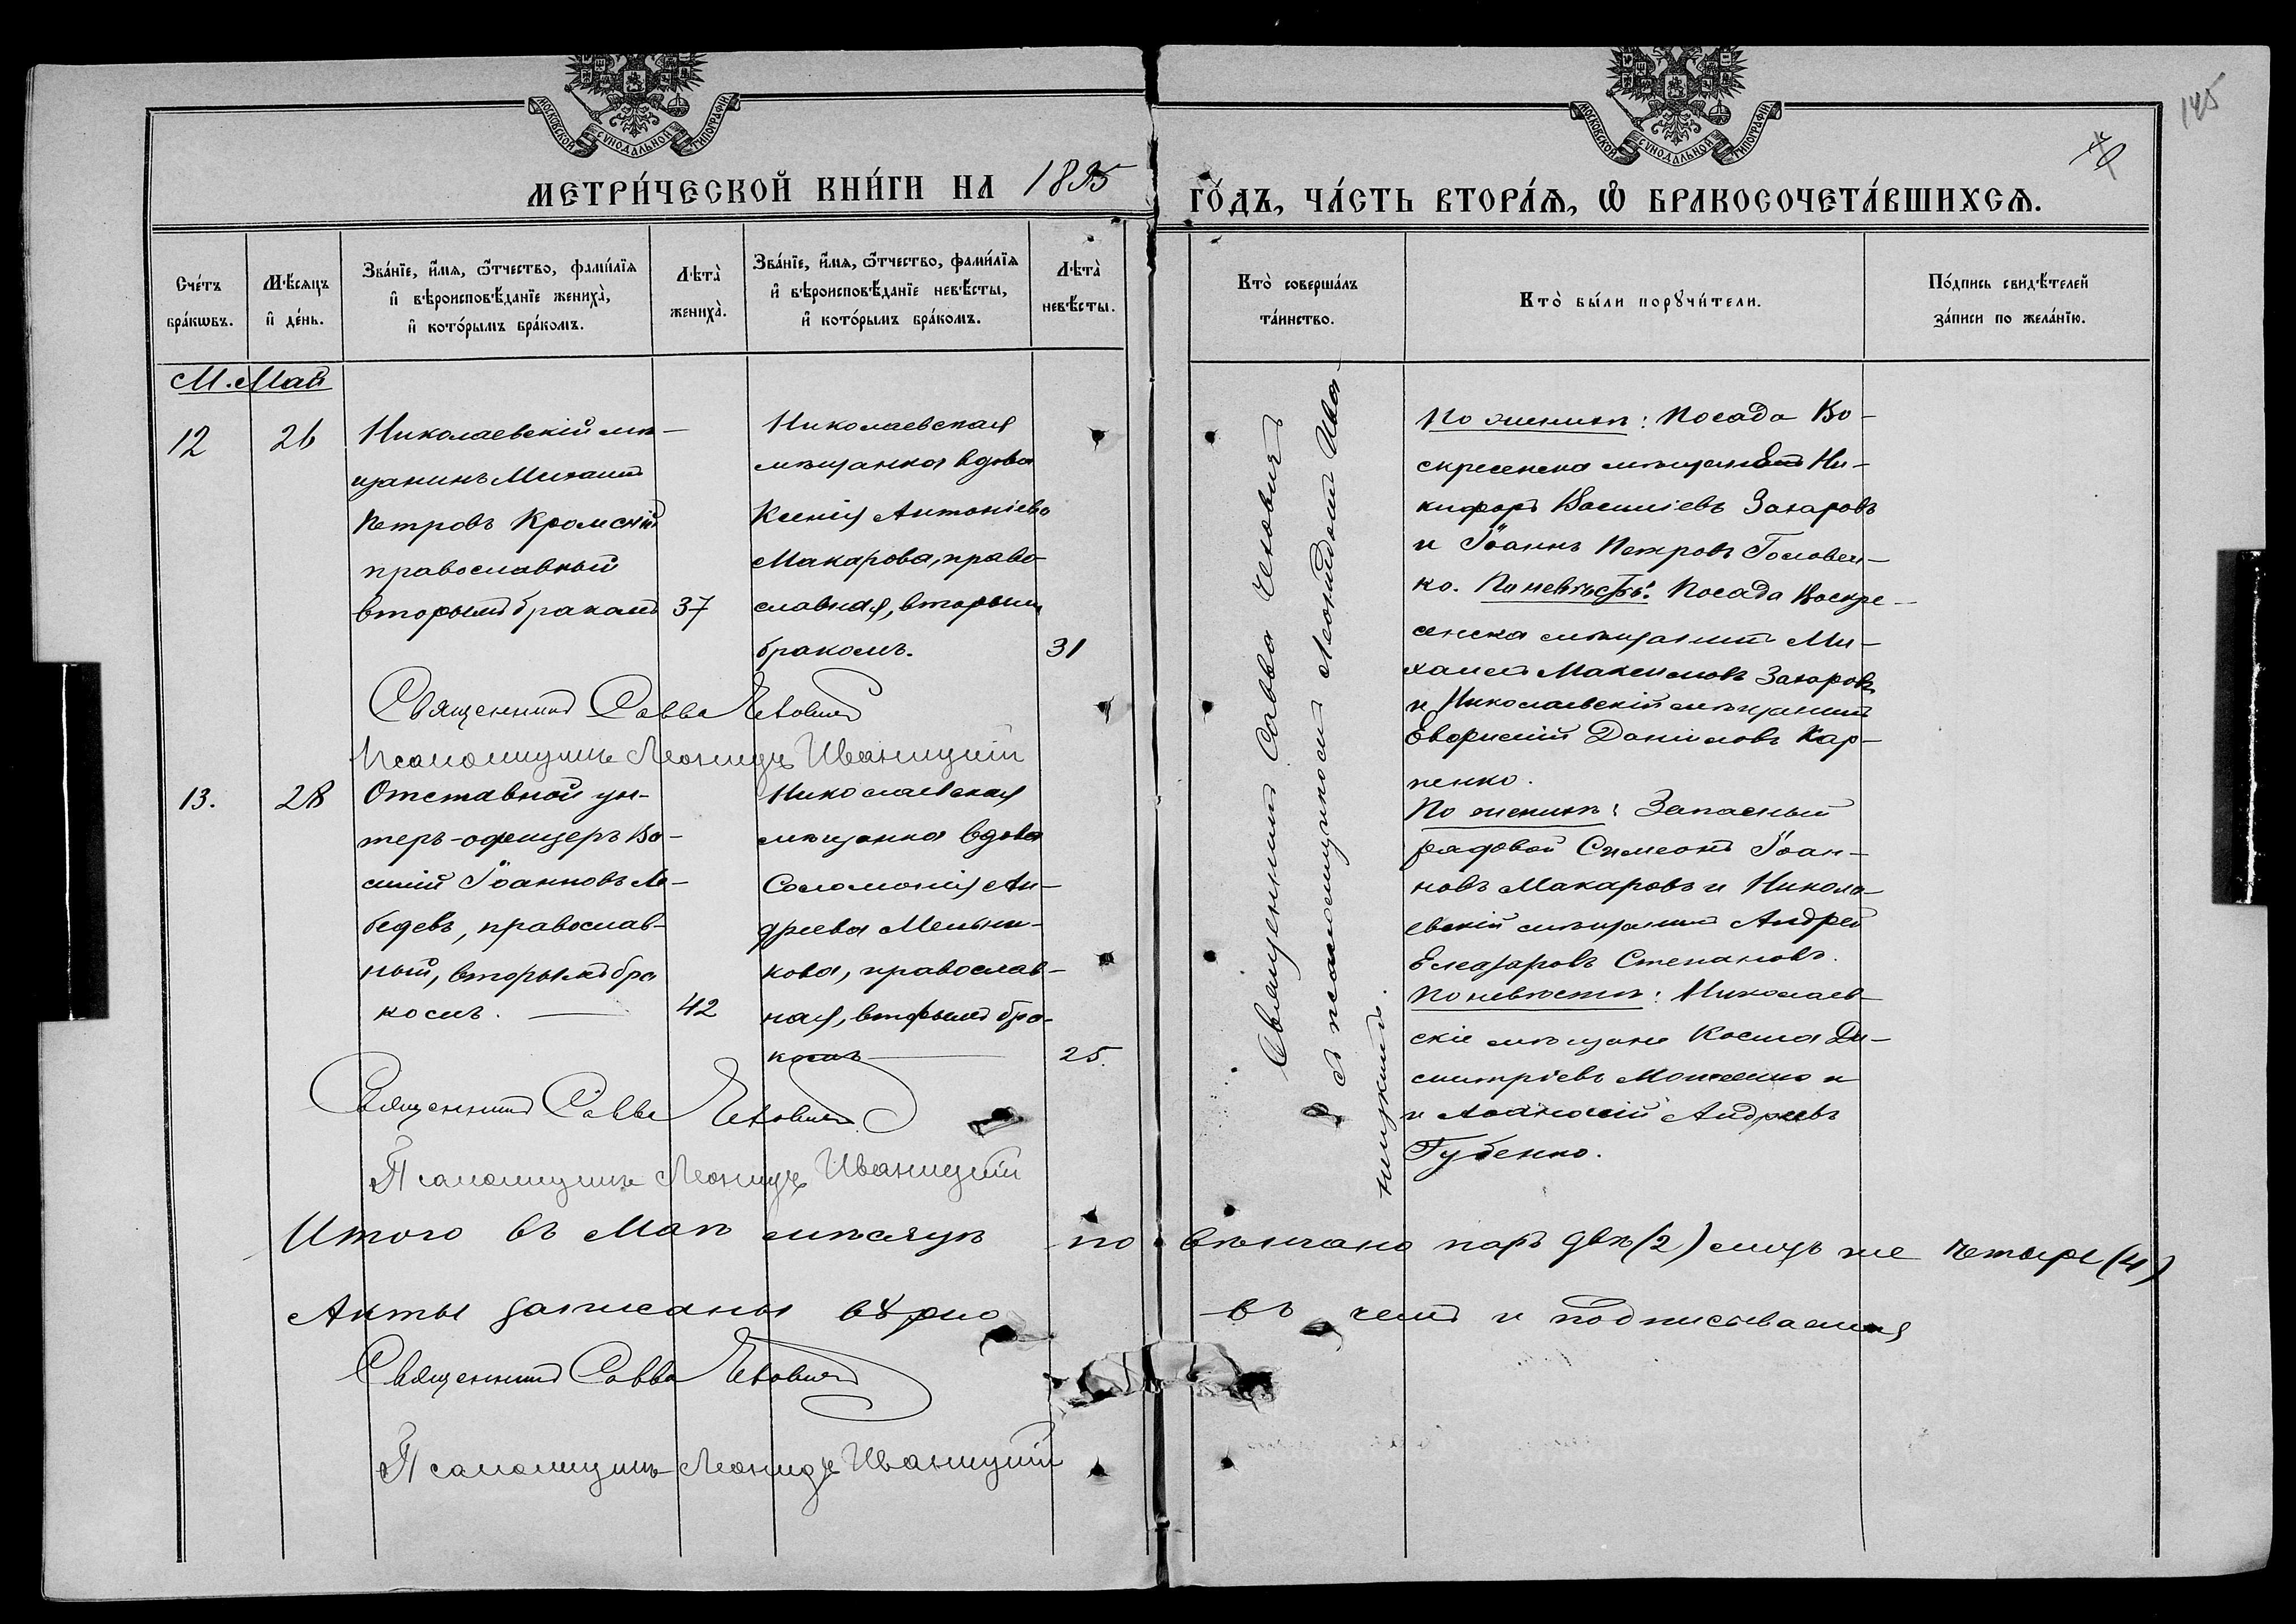 145
МОСКОВСКОЙ СѴНОДАЛЬНОЙ ТИПОГРАФІИ
МОСКОВСКОЙ СѴНОДАЛЬНОЙ ТИПОГРАФІИ
МЕТРИ́ЧЕСКОЙ КНИ́ГИ НА 1895 ГО́ДЪ, ЧА́СТЬ ВТОРА́Ѧ, Ѡ҆ БРАКОСОЧЕТА́ВШИХСѦ.
Сче́тъ
бра́кѡвъ.
Мѣ́сѧцъ
и҆ де́нь.
Зва́нїе, и҆́мѧ, ѻ҆́тчество, фами́лїѧ
и҆ вѣроисповѣ́данїе жениха̀,
и҆ кото́рымъ бра́комъ.
Лѣта̀
жениха̀.
Зва́нїе, и҆́мѧ, ѻ҆́тчество, фами́лїѧ
и҆ вѣроисповѣ́данїе невѣ́сты,
и҆ кото́рымъ бра́комъ.
Лѣта̀
невѣ́сты.
Кто̀ соверша́лъ
та́инство.
Кто̀ бы́ли порꙋчи́тели.
По́дпись свидѣ́телей
за́писи по жела́нїю.
М. Май
12
26
Николаевскій мѣ-
щанинъ Михаилъ
Петровъ Кромскій
православный
вторымъ бракомъ
37
Николаевская
мѣщанка вдова
Ксенія Антоніева
Макарова, право-
славная, вторымъ
бракомъ.
31
Священникъ Савва Чехович
и псаломщикомъ Леонидомъ Ива-
ницкимъ.
По женихѣ: Посада Во-
скресенска мѣщане Ни-
кифоръ Василіевъ Захаровъ
и Іоаннъ Петровъ Головен-
ко. По невѣстѣ: Посада Воскре-
сенска мѣщанинъ Ми-
хаилъ Максимовъ Захаровъ
и Николаевскій мѣщанинъ
Евфимій Даниловъ Кар-
пенко.
Священникъ Савва Чехович
Псаломщикъ Леонидъ Иваницкій
13.
28
Отставной ун-
теръ-офицеръ Ва-
силій Іоанновъ Ле-
бедевъ, православ-
ный, вторымъ бра
комъ.
42
Николаевская
мѣщанка вдова
Соломонія Ан-
дреева Мельни-
кова, православ-
ная, вторымъ бра-
комъ
25.
По женихѣ: Запасный
рядовой Симеонъ Іоан-
новъ Макаровъ и Никола-
евскій мѣщанинъ Андрей
Елеазаровъ Степановъ.
По невѣстѣ: Николаев-
скіе мѣщане Косма Ди-
митріевъ и
и Аѳанасій Андреевъ
Губенко.
Священникъ Савва Чехович
Псаломщикъ Леонидъ Иваницкій
Итого въ Маѣ мѣсяцѣ повѣнчано паръ двѣ (2) лицъ же четыре (4)
Акты записаны вѣрно въ чемъ и подписываемся
Священникъ Савва Чехович
Псаломщикъ Леонидъ Иваницкій